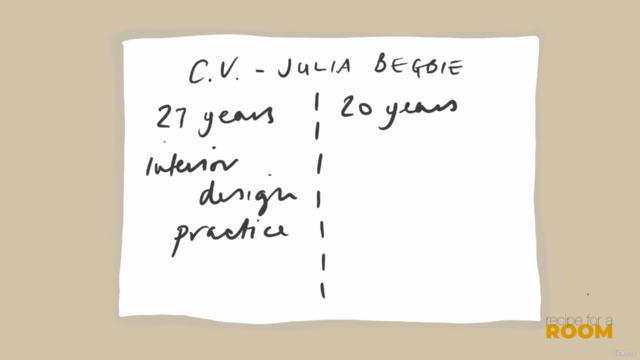 C.V. - JULIA BEGBIE
27 years
20 years
Interior
design
practice
recipe for a
ROOM